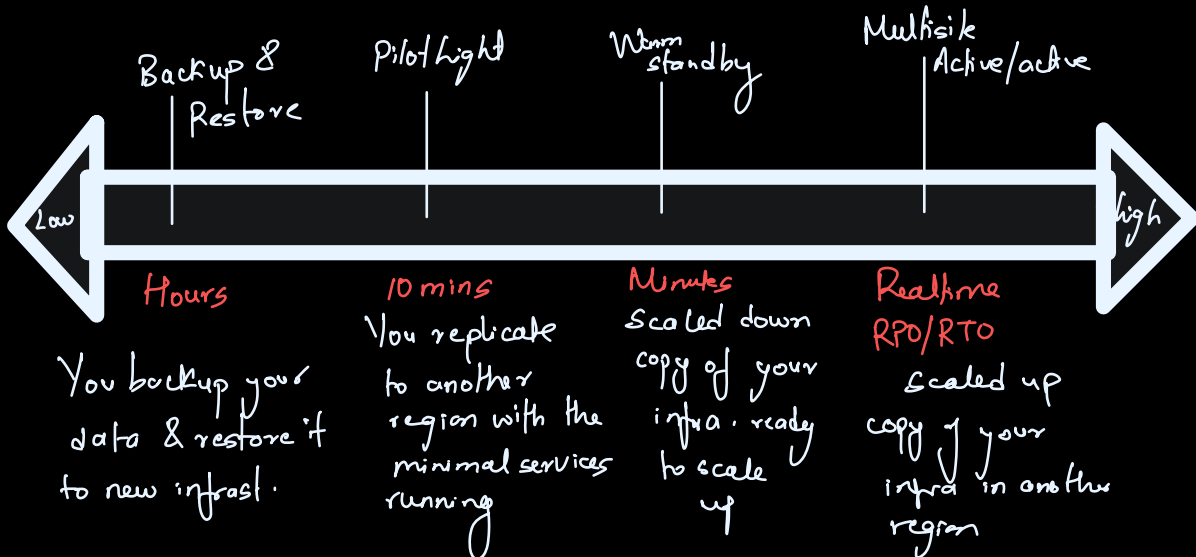 Backup &
Restore
Pilot Light
Warm
standby
Multisite
Active/active
Low
high
Hours
You backup your
data & restore it
to new infrast.
10 mins
You replicate
to another
region with the
minimal services
running
Minutes
scaled down
copy of your
infra. ready
to scale
up
Realtime
RPO/RTO
scaled up
copy of your
infra in another
region